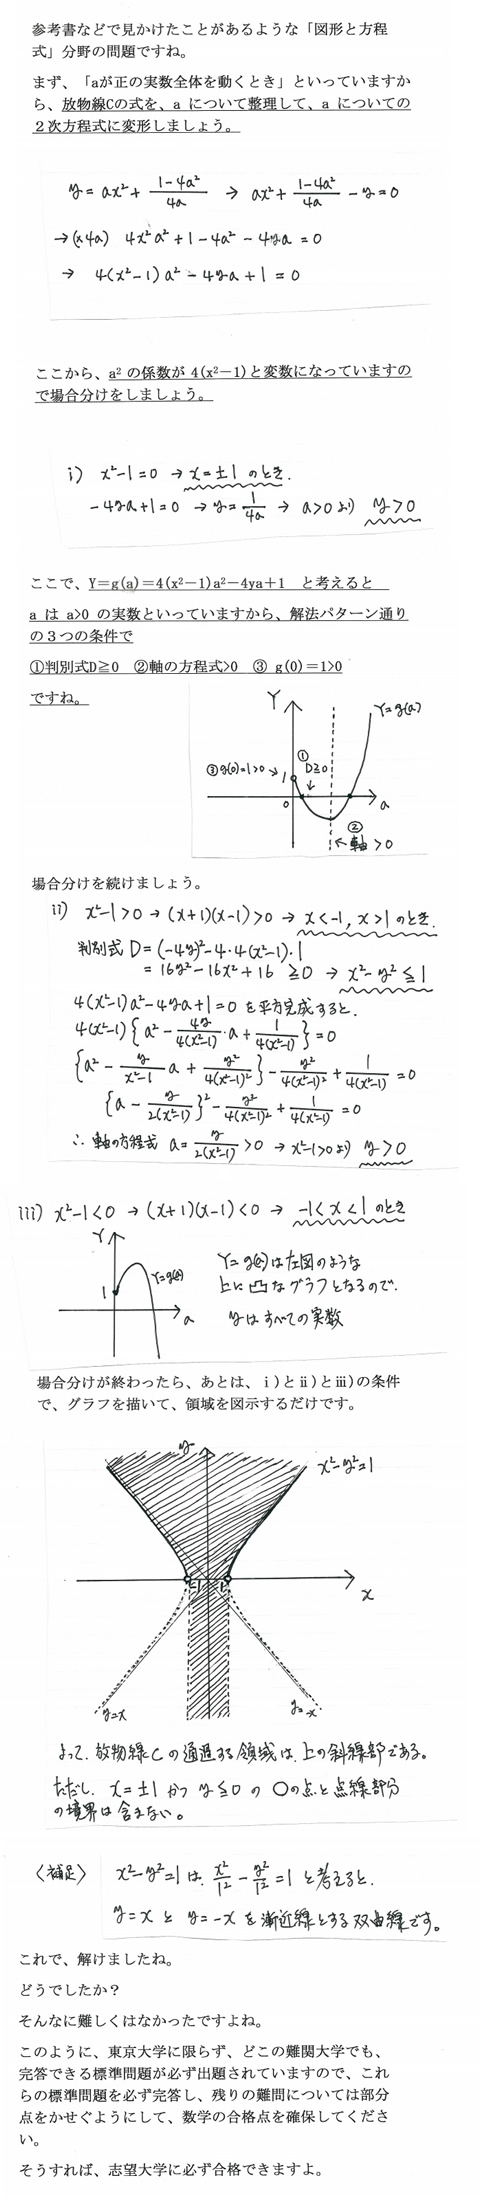 参考書などで見かけたことがあるような「図形と方程
式」分野の問題ですね。
まず、「aが正の実数全体を動くとき」といっていますか
ら、放物線Cの式を、a について整理して、a についての
２次方程式に変形しましょう。
y = ax² + (1-4a²)/4a → ax² + (1-4a²)/4a - y = 0
→(×4a) 4x²a² + 1 - 4a² - 4ya = 0
→ 4(x²-1)a² - 4ya + 1 = 0
ここから、a² の係数が 4(x²－1)と変数になっていますの
で場合分けをしましょう。
i) x²-1=0 → x=±1 のとき.
-4ya+1=0 → y=1/4a → a>0より y>0
ここで、Y＝g(a)＝4(x²－1)a²－4ya＋1 と考えると
a は a>0 の実数といっていますから、解法パターン通り
の３つの条件で
①判別式D≧0 ②軸の方程式>0 ③ g(0)＝1>0
ですね。
Y
Y=g(a)
①
③g(0)=1>0→
1
D≧0
0
a
②
←軸>0
場合分けを続けましょう。
ii) x²-1>0 → (x+1)(x-1)>0 → x<-1, x>1 のとき.
判別式 D=(-4y)²-4・4(x²-1)・1
= 16y²-16x²+16 ≧0 → x²-y²≦1
4(x²-1)a²-4ya+1=0 を平方完成すると.
4(x²-1){a² - 4y/4(x²-1)・a + 1/4(x²-1)}=0
{a² - y/(x²-1) a + y²/4(x²-1)²} - y²/4(x²-1)² + 1/4(x²-1) = 0
{a - y/2(x²-1)}² - y²/4(x²-1)² + 1/4(x²-1) = 0
∴ 軸の方程式 a= y/2(x²-1) >0 → x²-1>0より y>0
iii) x²-1<0 → (x+1)(x-1)<0 → -1<x<1 のとき
Y
Y=g(a)
1
a
Y=g(a)は左図のような
上に凸なグラフとなるので.
yはすべての実数
場合分けが終わったら、あとは、ⅰ)とⅱ)とⅲ)の条件
で、グラフを描いて、領域を図示するだけです。
y
x²-y²=1
-1
1
x
y=x
y=-x
よって、放物線Cの通過する領域は、上の斜線部である。
ただし、x=±1かつy≦0の ○の点と点線部分
の境界は含まない。
〈補足〉
x²-y²=1 は、x²/1² - y²/1² =1 と考えると.
y=x と y=-x を漸近線とする双曲線です。
これで、解けましたね。
どうでしたか？
そんなに難しくはなかったですよね。
このように、東京大学に限らず、どこの難関大学でも、
完答できる標準問題が必ず出題されていますので、これ
らの標準問題を必ず完答し、残りの難問については部分
点をかせぐようにして、数学の合格点を確保してくださ
い。
そうすれば、志望大学に必ず合格できますよ。